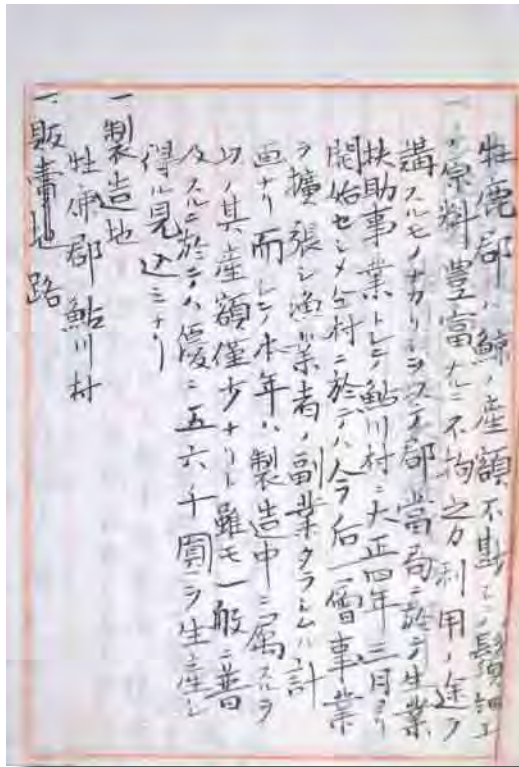 牡鹿郡ハ鯨ノ産額不尠モ其ノ鬚細工
ノ原料豊富ナルニ不拘之カ利用ノ途ヲ
講スルモノナカリシヲ以テ郡當局ニ於テ生業
扶助事業トシテ鮎川村ニ大正四年三月ヨリ
開始セシメ仝村ニ於テハ今后一層事業
ヲ擴張シ漁業者ノ副業タラシムル計
画ナリ而シテ本年ハ製造中ニ属スルヲ
以ノ其産額僅少ナリト雖モ一般ニ普
及スルニ於テハ優ニ五六千圓ヲ生産シ
得ル見込ミナリ
一製造地
牡鹿郡鮎川村
一、販賣地路